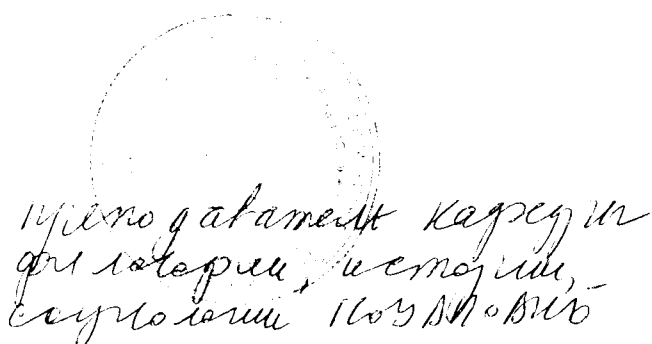 преподаватель кафедры
философии, истории,
социологии НОУ ВПО